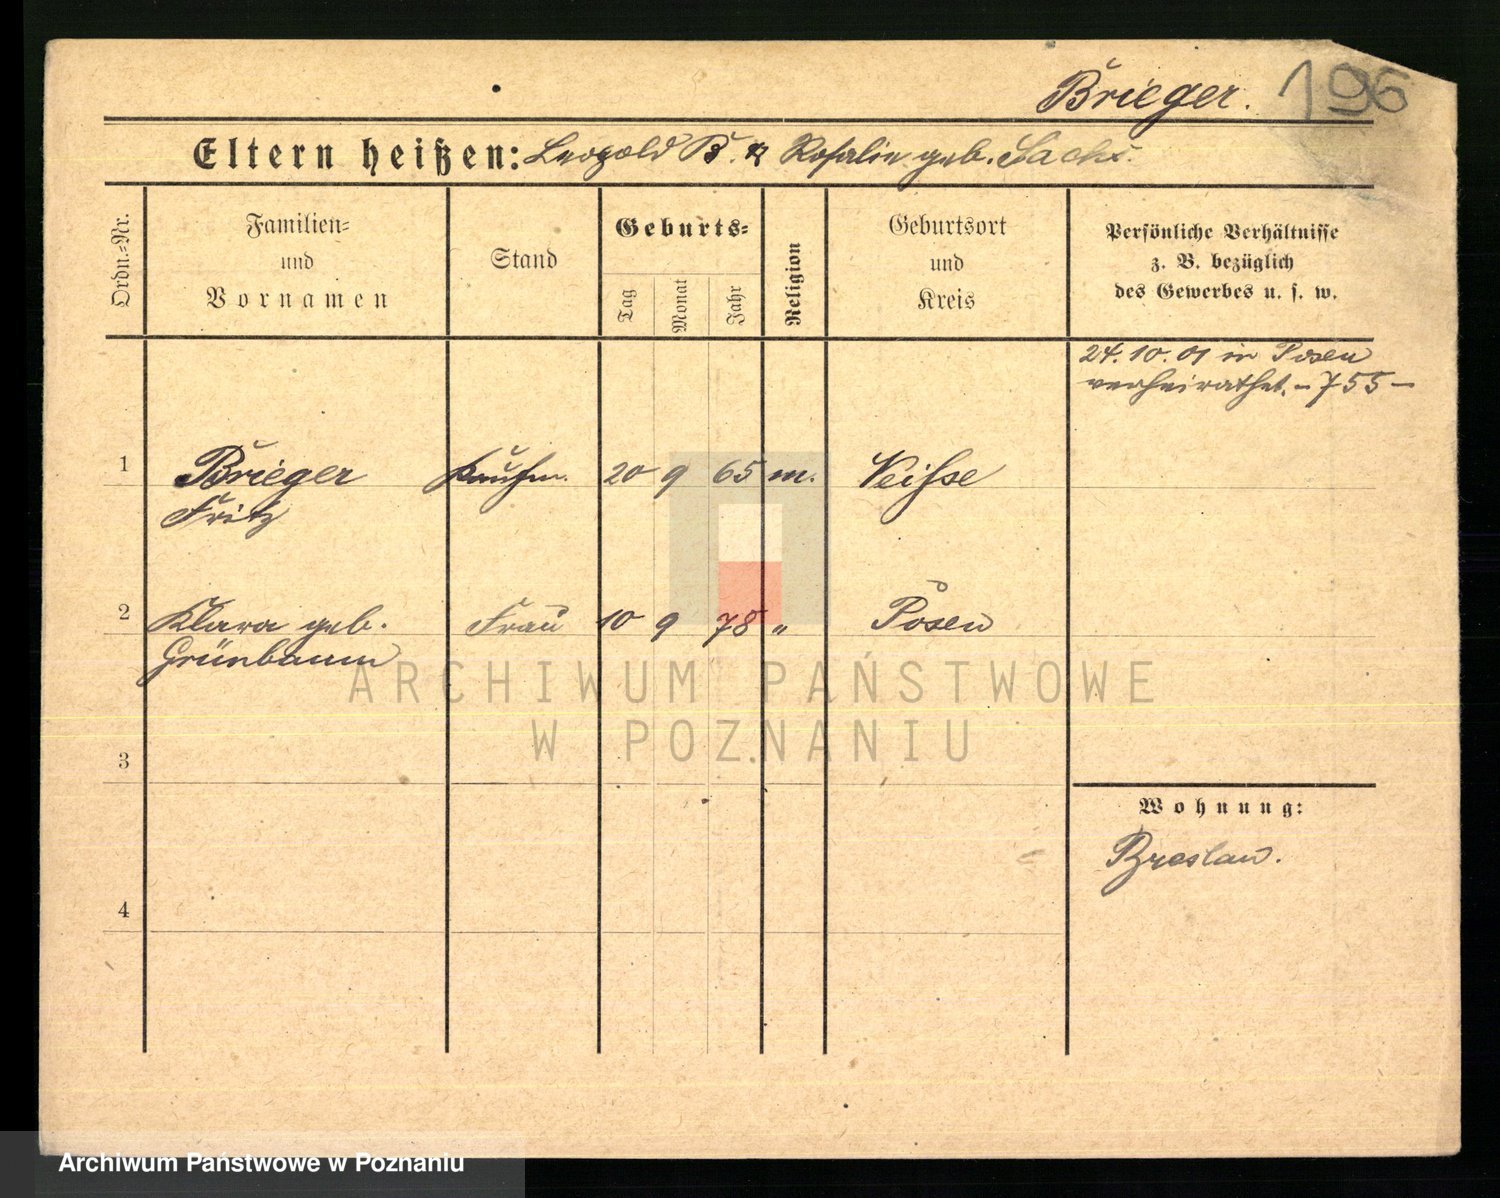 Brieger. 196
Eltern heißen: Leopold B. & Rosalie geb. Sachs.
Ordn.-Nr.
Familien-
und
Vornamen
Stand
Geburts-
Tag
Monat
Jahr
Religion
Geburtsort
und
Kreis
Persönliche Verhältnisse
z. B. bezüglich
des Gewerbes u. s. w.
24. 10. 01 in Posen
verheirathet. - 755 -
1 Brieger Kaufm. 20 9 65 m. Neisse
Fritz
2 Klara geb. Frau 10 9 78 " Posen
Grünbaum
ARCHIWUM PAŃSTWOWE
W POZNANIU
3
Wohnung:
Breslau.
4
Archiwum Państwowe w Poznaniu